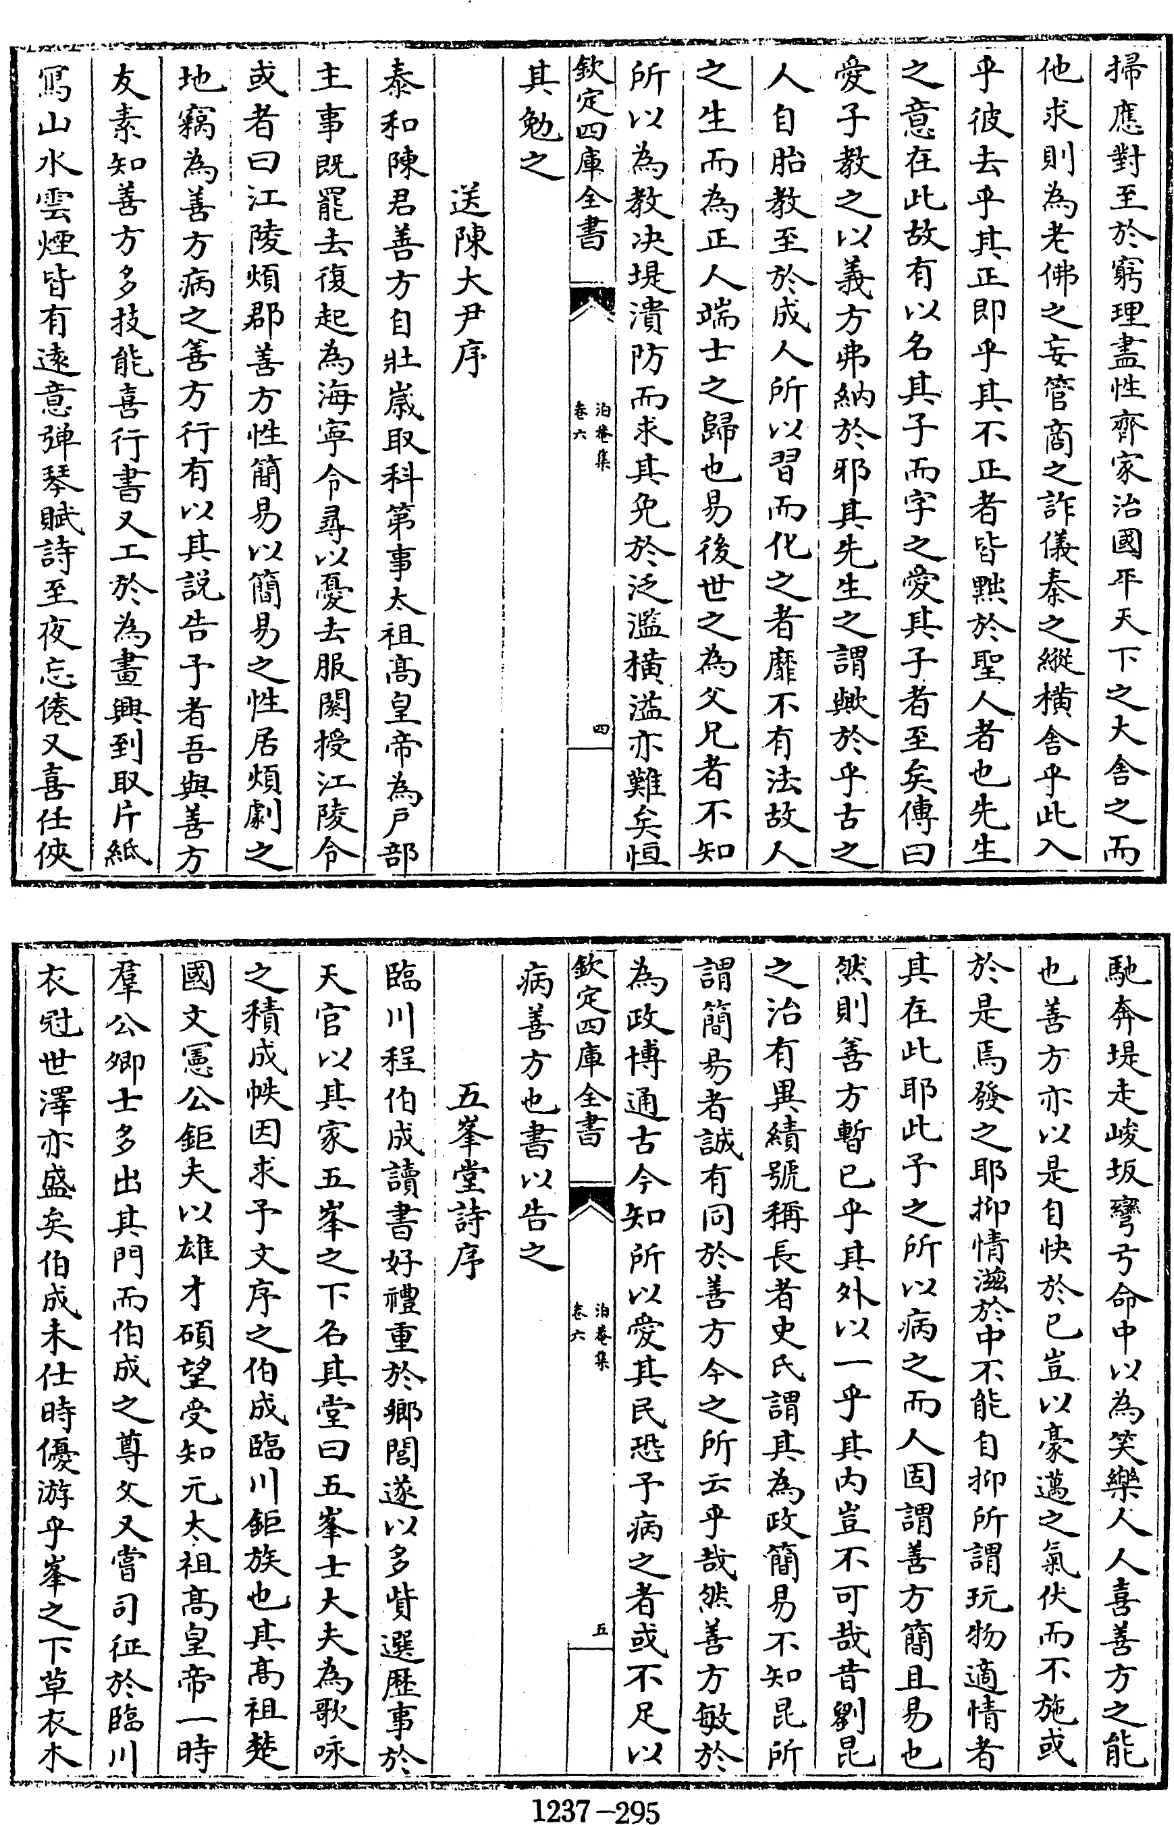 掃應對至於窮理盡性齊家治國平天下之大舍之而
他求則為老佛之妄管商之詐儀秦之縱橫舍乎此入
乎彼去乎其正即乎其不正者皆黜於聖人者也先生
之意在此故有以名其子而字之愛其子者至矣傳曰
愛子教之以義方弗納於邪其先生之謂歟於乎古之
人自胎教至於成人所以習而化之者靡不有法故人
之生而為正人端士之歸也易後世之為父兄者不知
所以為教決堤潰防而求其免於泛濫橫溢亦難矣恒
欽定四庫全書
泊菴集
卷六
四
其勉之
送陳大尹序
泰和陳君善方自壯歲取科第事太祖高皇帝為戶部
主事既罷去復起為海寧令尋以憂去服闋授江陵令
或者曰江陵煩郡善方性簡易以簡易之性居煩劇之
地竊為善方病之善方行有以其說告予者吾與善方
友素知善方多技能喜行書又工於為畫興到取片紙
寫山水雲煙皆有遠意彈琴賦詩至夜忘倦又喜任俠
馳奔堤走峻坂彎弓命中以為笑樂人人喜善方之能
也善方亦以是自快於己豈以豪邁之氣伏而不施或
於是焉發之耶抑情滋於中不能自抑所謂玩物適情者
其在此耶此予之所以病之而人固謂善方簡且易也
然則善方暫已乎其外以一乎其內豈不可哉昔劉昆
之治有異績號稱長者史氏謂其為政簡易不知昆所
謂簡易者誠有同於善方今之所云乎哉然善方敏於
為政博通古今知所以愛其民恐予病之者或不足以
欽定四庫全書
泊菴集
卷六
五
病善方也書以告之
五峯堂詩序
臨川程伯成讀書好禮重於鄉閭遂以多貲選歷事於
天官以其家五峯之下名其堂曰五峯士大夫為歌咏
之積成帙因求予文序之伯成臨川鉅族也其高祖楚
國文憲公鉅夫以雄才碩望受知元太祖高皇帝一時
羣公卿士多出其門而伯成之尊父又嘗司征於臨川
衣冠世澤亦盛矣伯成未仕時優游乎峯之下草衣木
1237-295